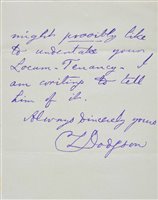 might possibly like
to undertake your
Locum-Tenancy. I
am writing to tell
him of it.
Always sincerely yours
C L Dodgson